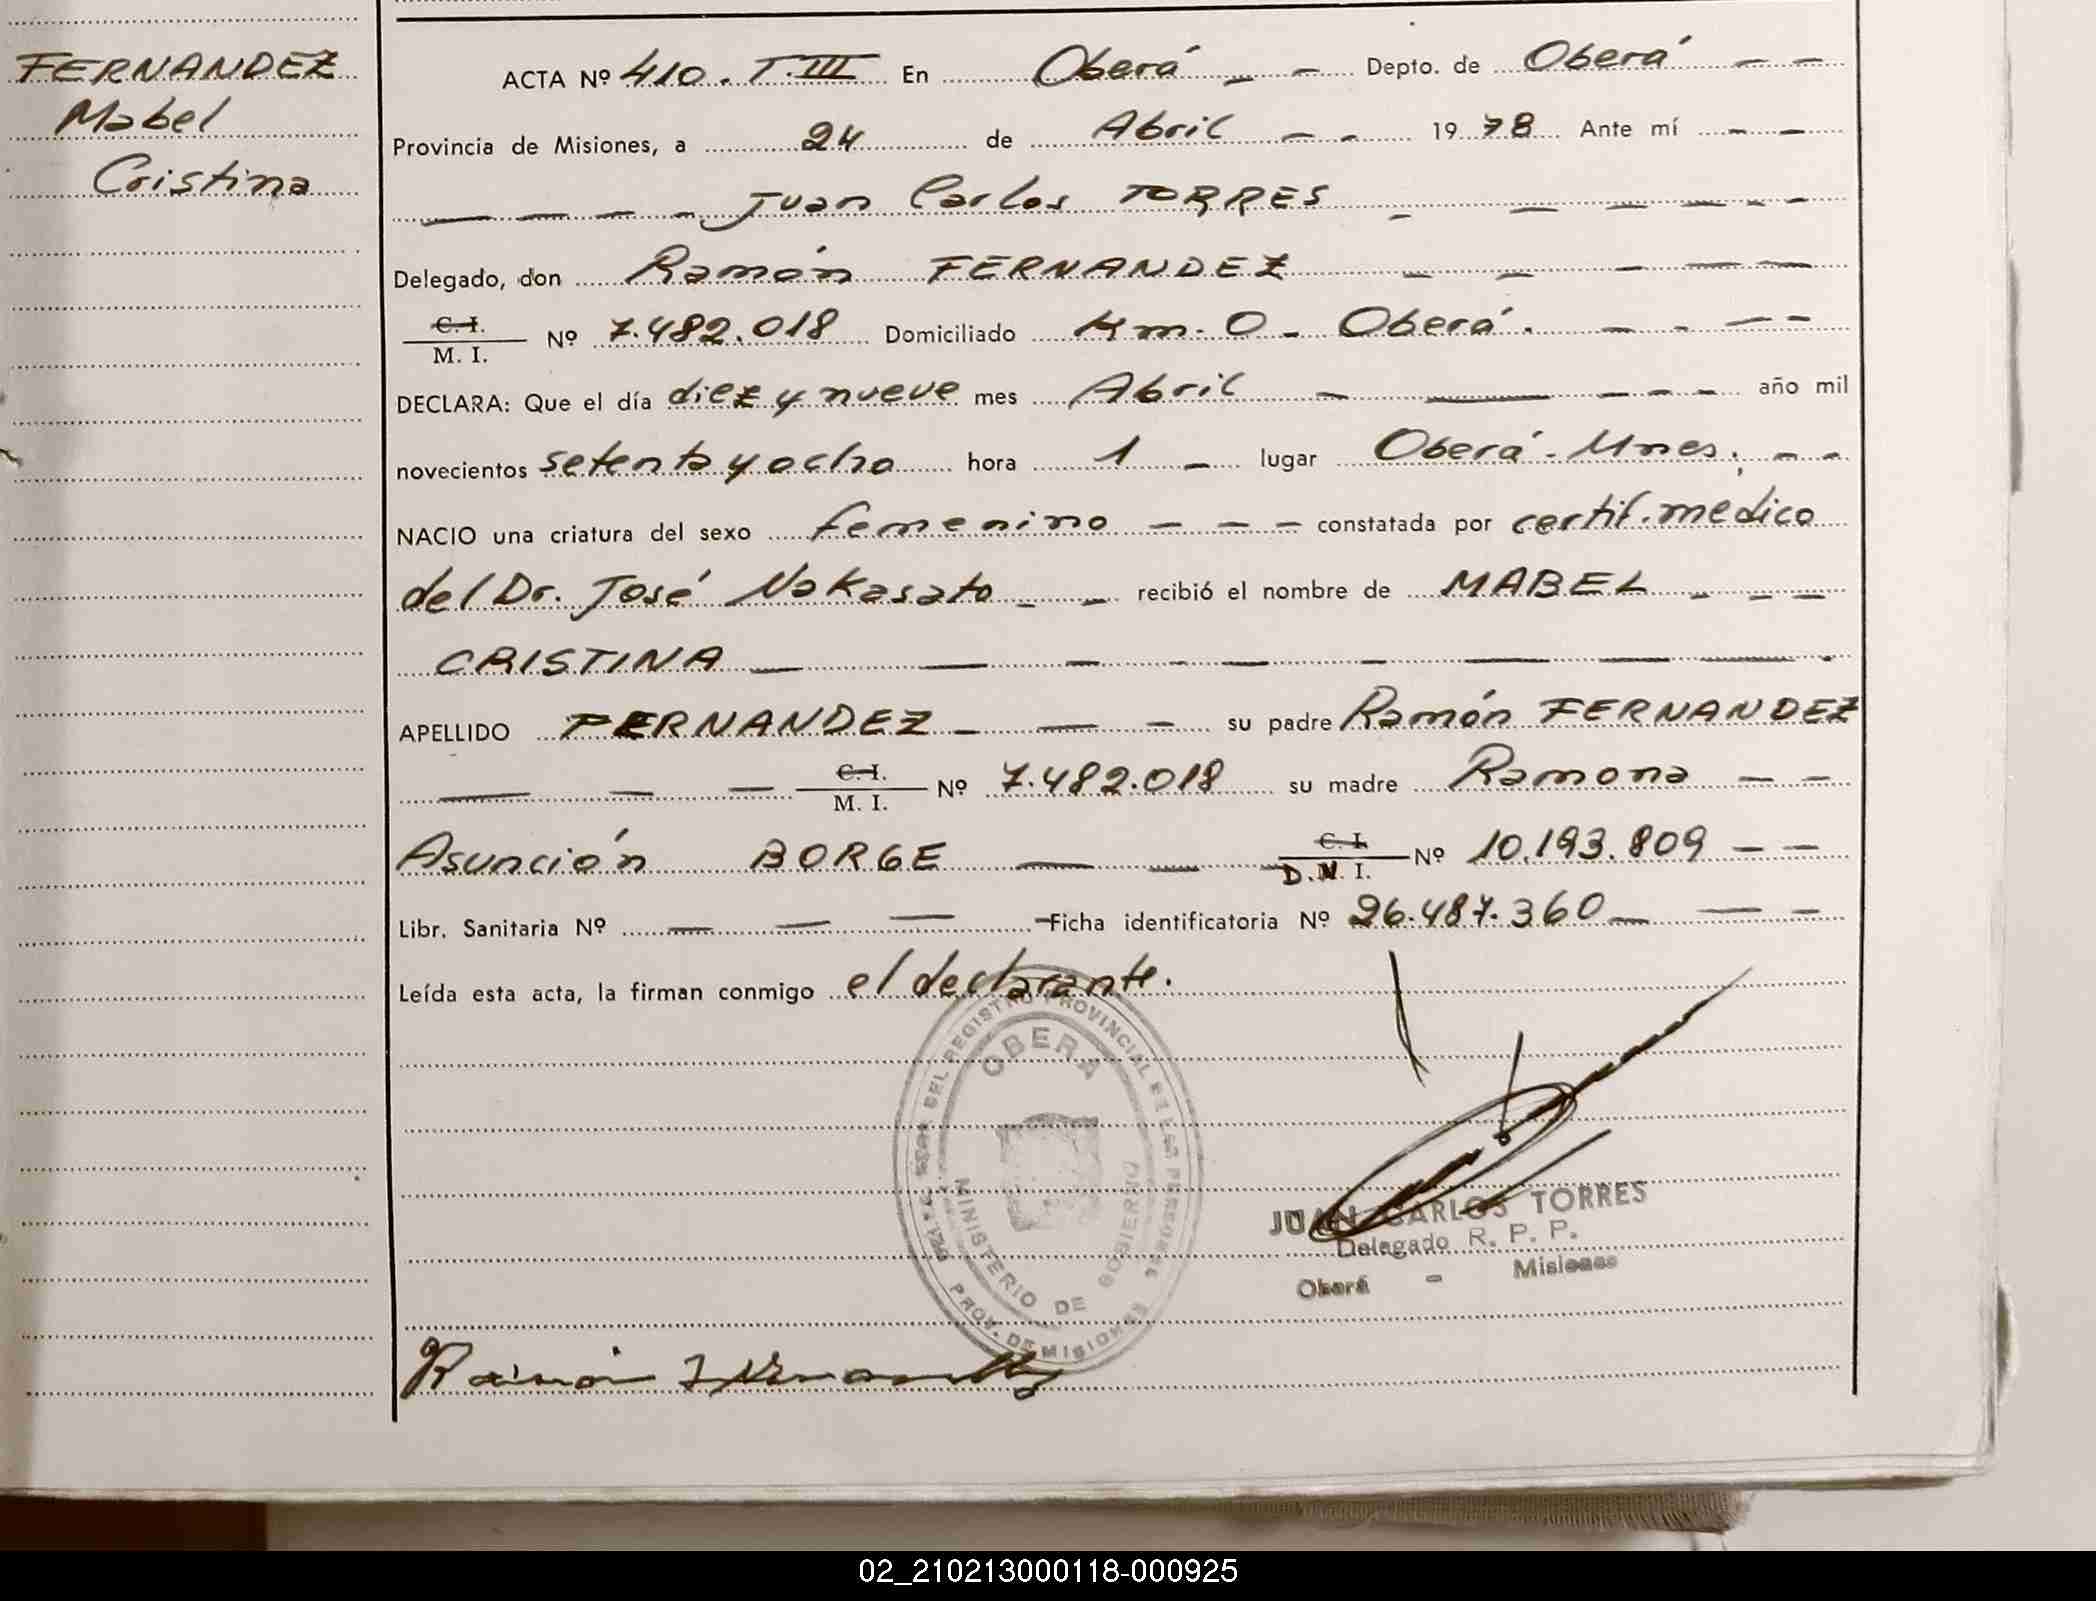 FERNANDEZ
Mabel
Cristina
ACTA Nº 410. T.III En Oberá Depto. de Oberá
Provincia de Misiones, a 24 de Abril 1978 Ante mí
Juan Carlos TORRES
Delegado, don Ramón FERNANDEZ
C. I.
M. I. Nº 7.482.018 Domiciliado Km. 0 - Oberá.
DECLARA: Que el día diez y nueve mes Abril año mil
novecientos setenta y ocho hora 1 lugar Oberá - Mnes.
NACIO una criatura del sexo femenino constatada por certif. médico
del Dr. José Nakasato recibió el nombre de MABEL
CRISTINA
APELLIDO FERNANDEZ su padre Ramón FERNANDEZ
C. I.
M. I. Nº 7.482.018 su madre Ramona
Asunción BORGE C. I.
D.N. I. Nº 10.193.809
Libr. Sanitaria Nº Ficha identificatoria Nº 26.487.360
Leída esta acta, la firman conmigo el declarante.
DEL REGISTRO PROVINCIAL DE LAS PERSONAS
OBERA
MINISTERIO DE GOBIERNO
PROV. DE MISIONES
JUAN CARLOS TORRES
Delegado R. P. P.
Oberá - Misiones
Ramón Fernandez
02_210213000118-000925